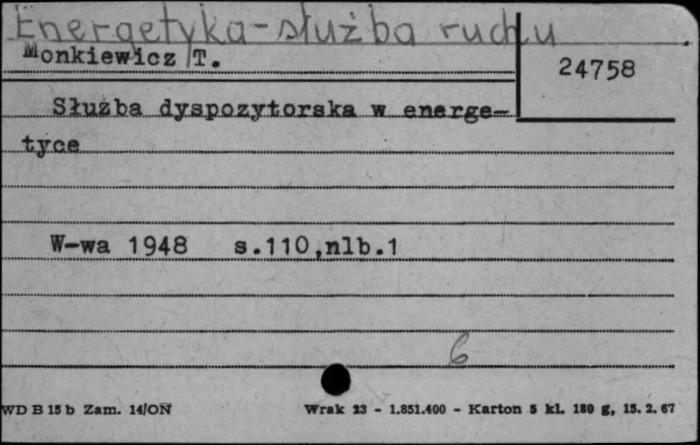 Energetyka-służba ruchu
Monkiewicz T.
24758
Służba dyspozytorska w energe-
tyce
W-wa 1948 s.110,nlb.1
6
WD B 15 b Zam. 14/ON Wrak 23 - 1.851.400 - Karton 5 kl. 180 g, 15. 2. 67